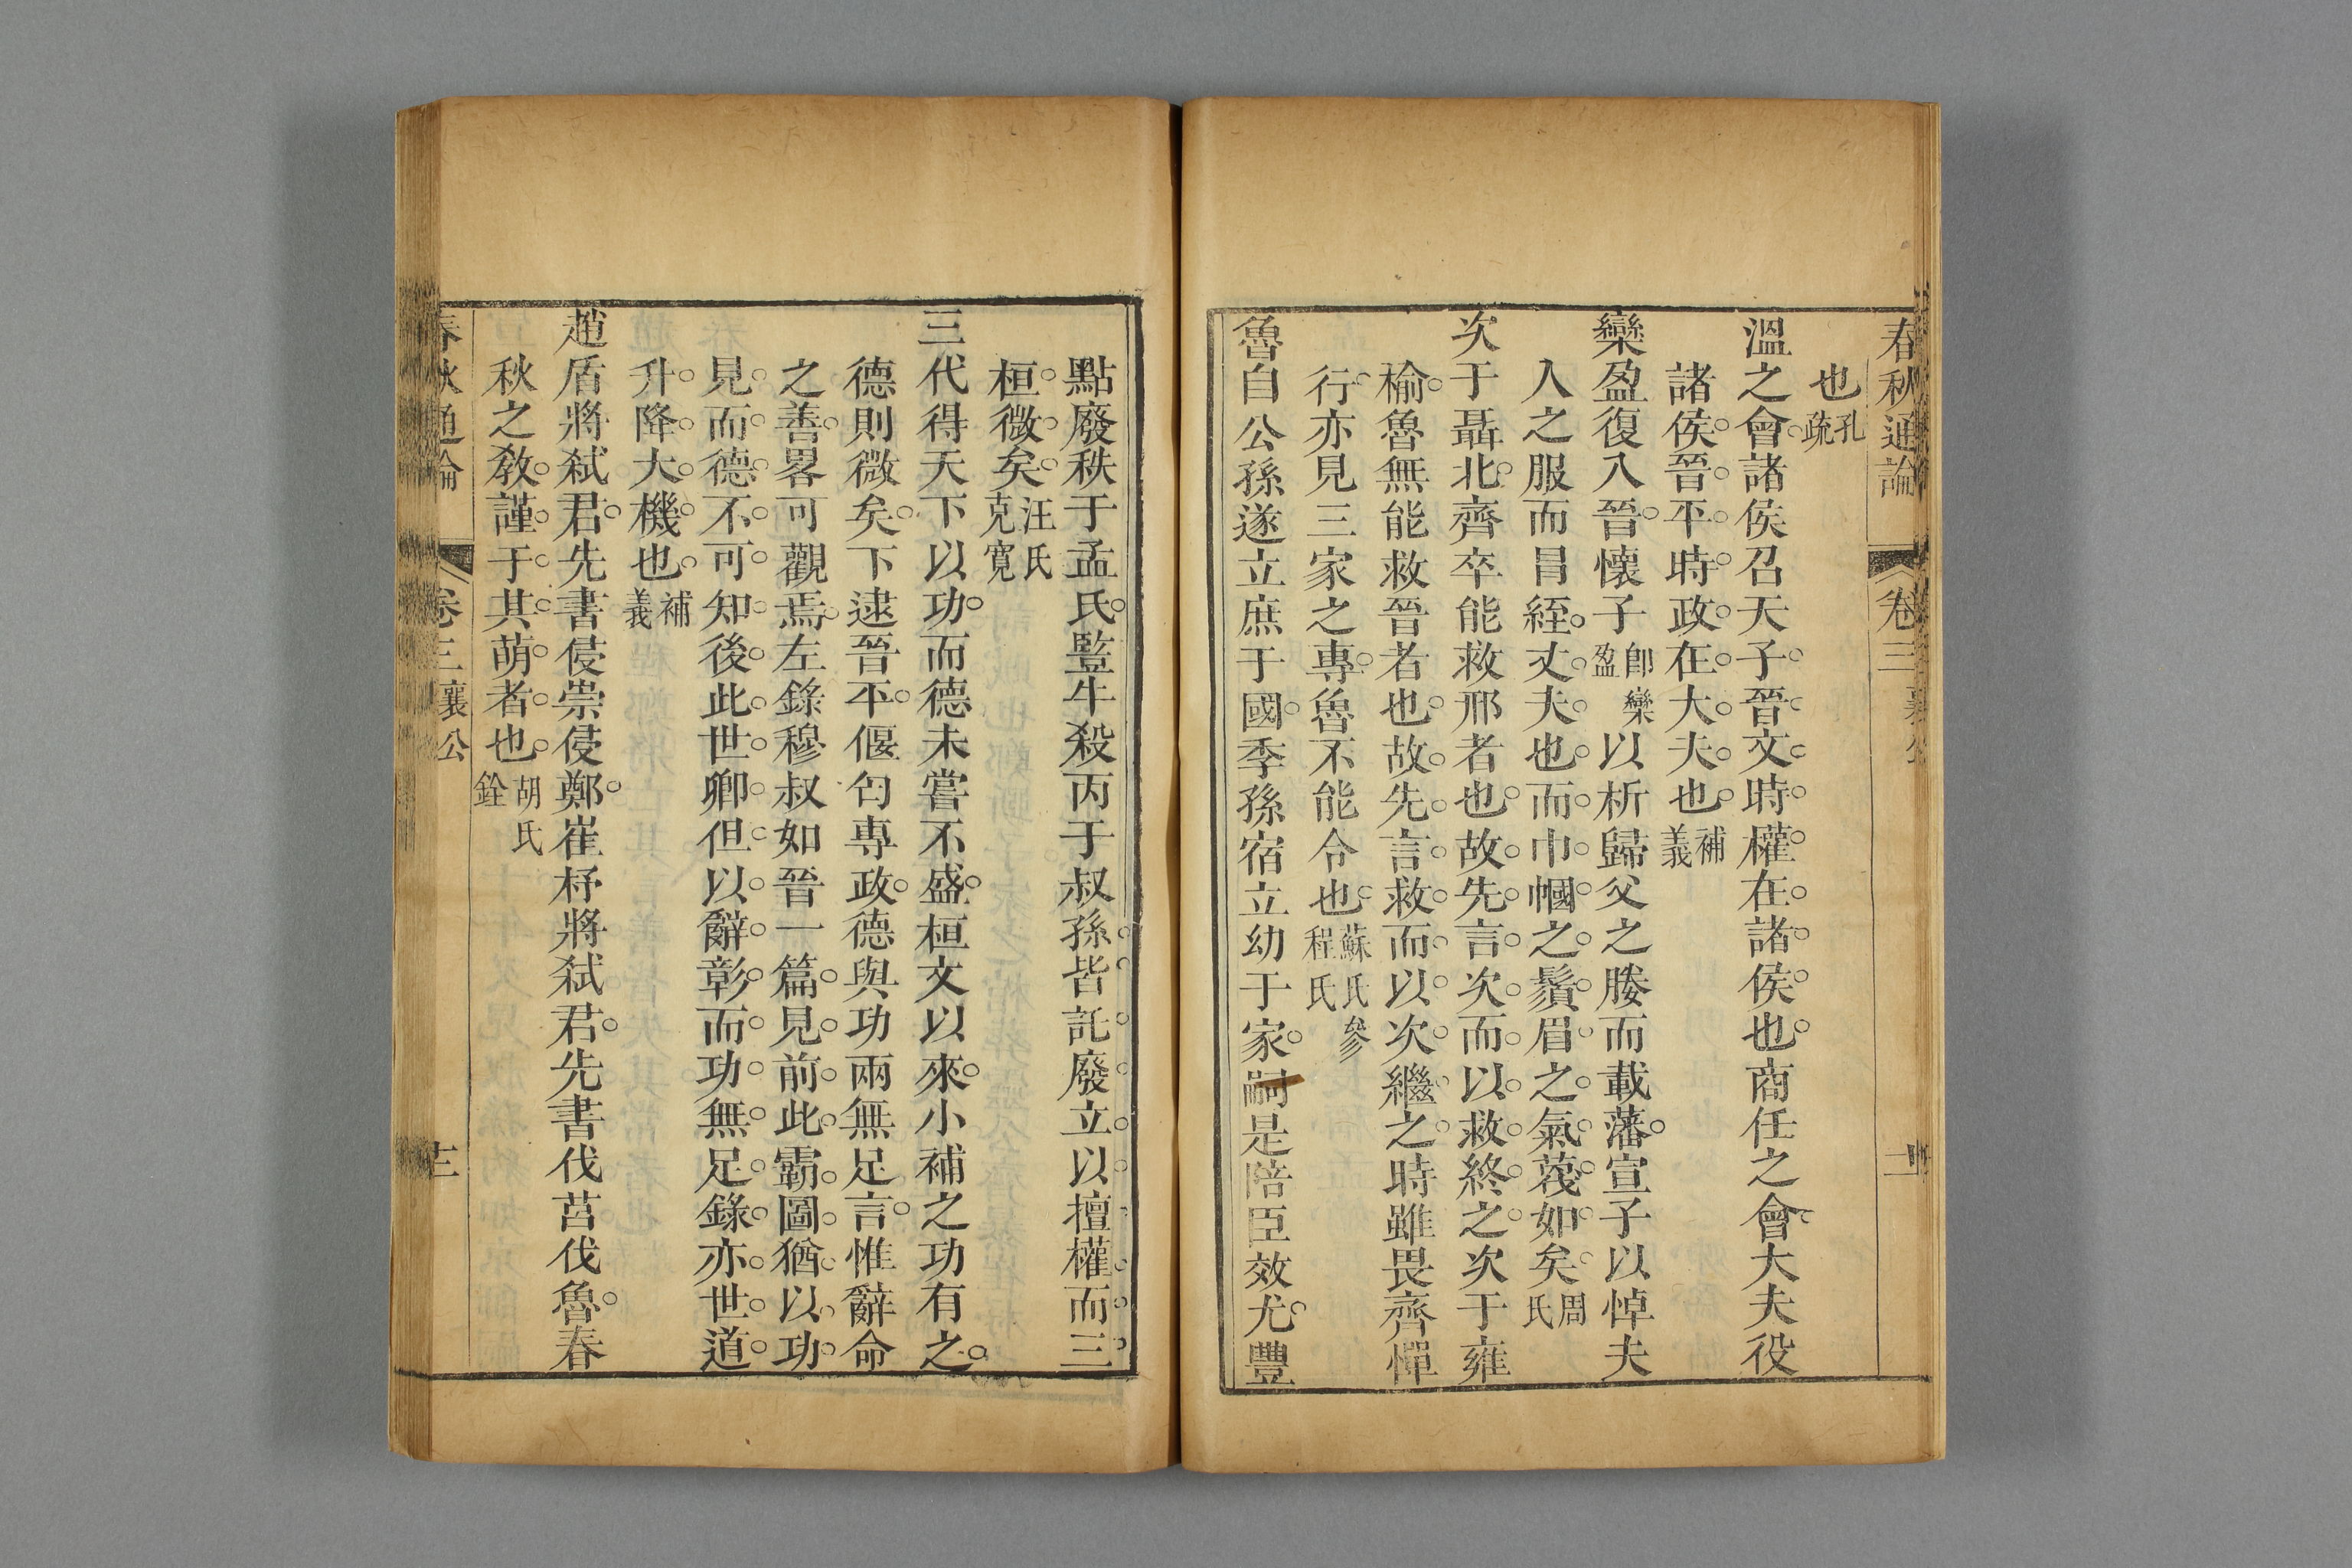 春秋通論 卷三 襄公
也孔疏
溫之會諸侯召天子晉文時權在諸侯也商任之會大夫役
諸侯晉平時政在大夫也補義
欒盈復入晉懷子卽欒盈以析歸父之媵而載藩宣子以悼夫
人之服而冒絰丈夫也而巾幗之鬚眉之氣蔑如矣周氏
次于聶北齊卒能救邢者也故先言次而以救終之次于雍
榆魯無能救晉者也故先言救而以次繼之時雖畏齊憚
行亦見三家之專魯不能令也蘇氏程氏參
魯自公孫遂立庶于國季孫宿立幼于家嗣是陪臣效尤豐
點廢秩于孟氏豎牛殺丙于叔孫皆託廢立以擅權而三
桓微矣汪氏克寬
三代得天下以功而德未嘗不盛桓文以來小補之功有之
德則微矣下逮晉平偃匄專政德與功兩無足言惟辭命
之善畧可觀焉左錄穆叔如晉一篇見前此霸圖猶以功
見而德不可知後此世卿但以辭彰而功無足錄亦世道
升降大機也補義
趙盾將弒君先書侵崇侵鄭崔杼將弒君先書伐莒伐魯春
秋之敎謹于其萌者也胡氏銓
春秋通論 卷三 襄公